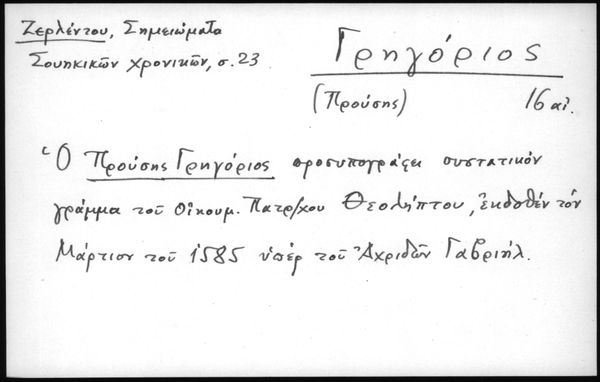 Ζερλέντου, Σημειώματα
Σουηκικῶν χρονικῶν, σ. 23
Γρηγόριος
(Προύσης) 16 αἰ.
Ὁ Προύσης Γρηγόριος προσυπογράφει συστατικόν
γράμμα τοῦ Οἰκουμ. Πατρ/χου Θεολήπτου, ἐκδοθέν τόν
Μάρτιον τοῦ 1585 ὑπέρ τοῦ Ἀχριδῶν Γαβριήλ.